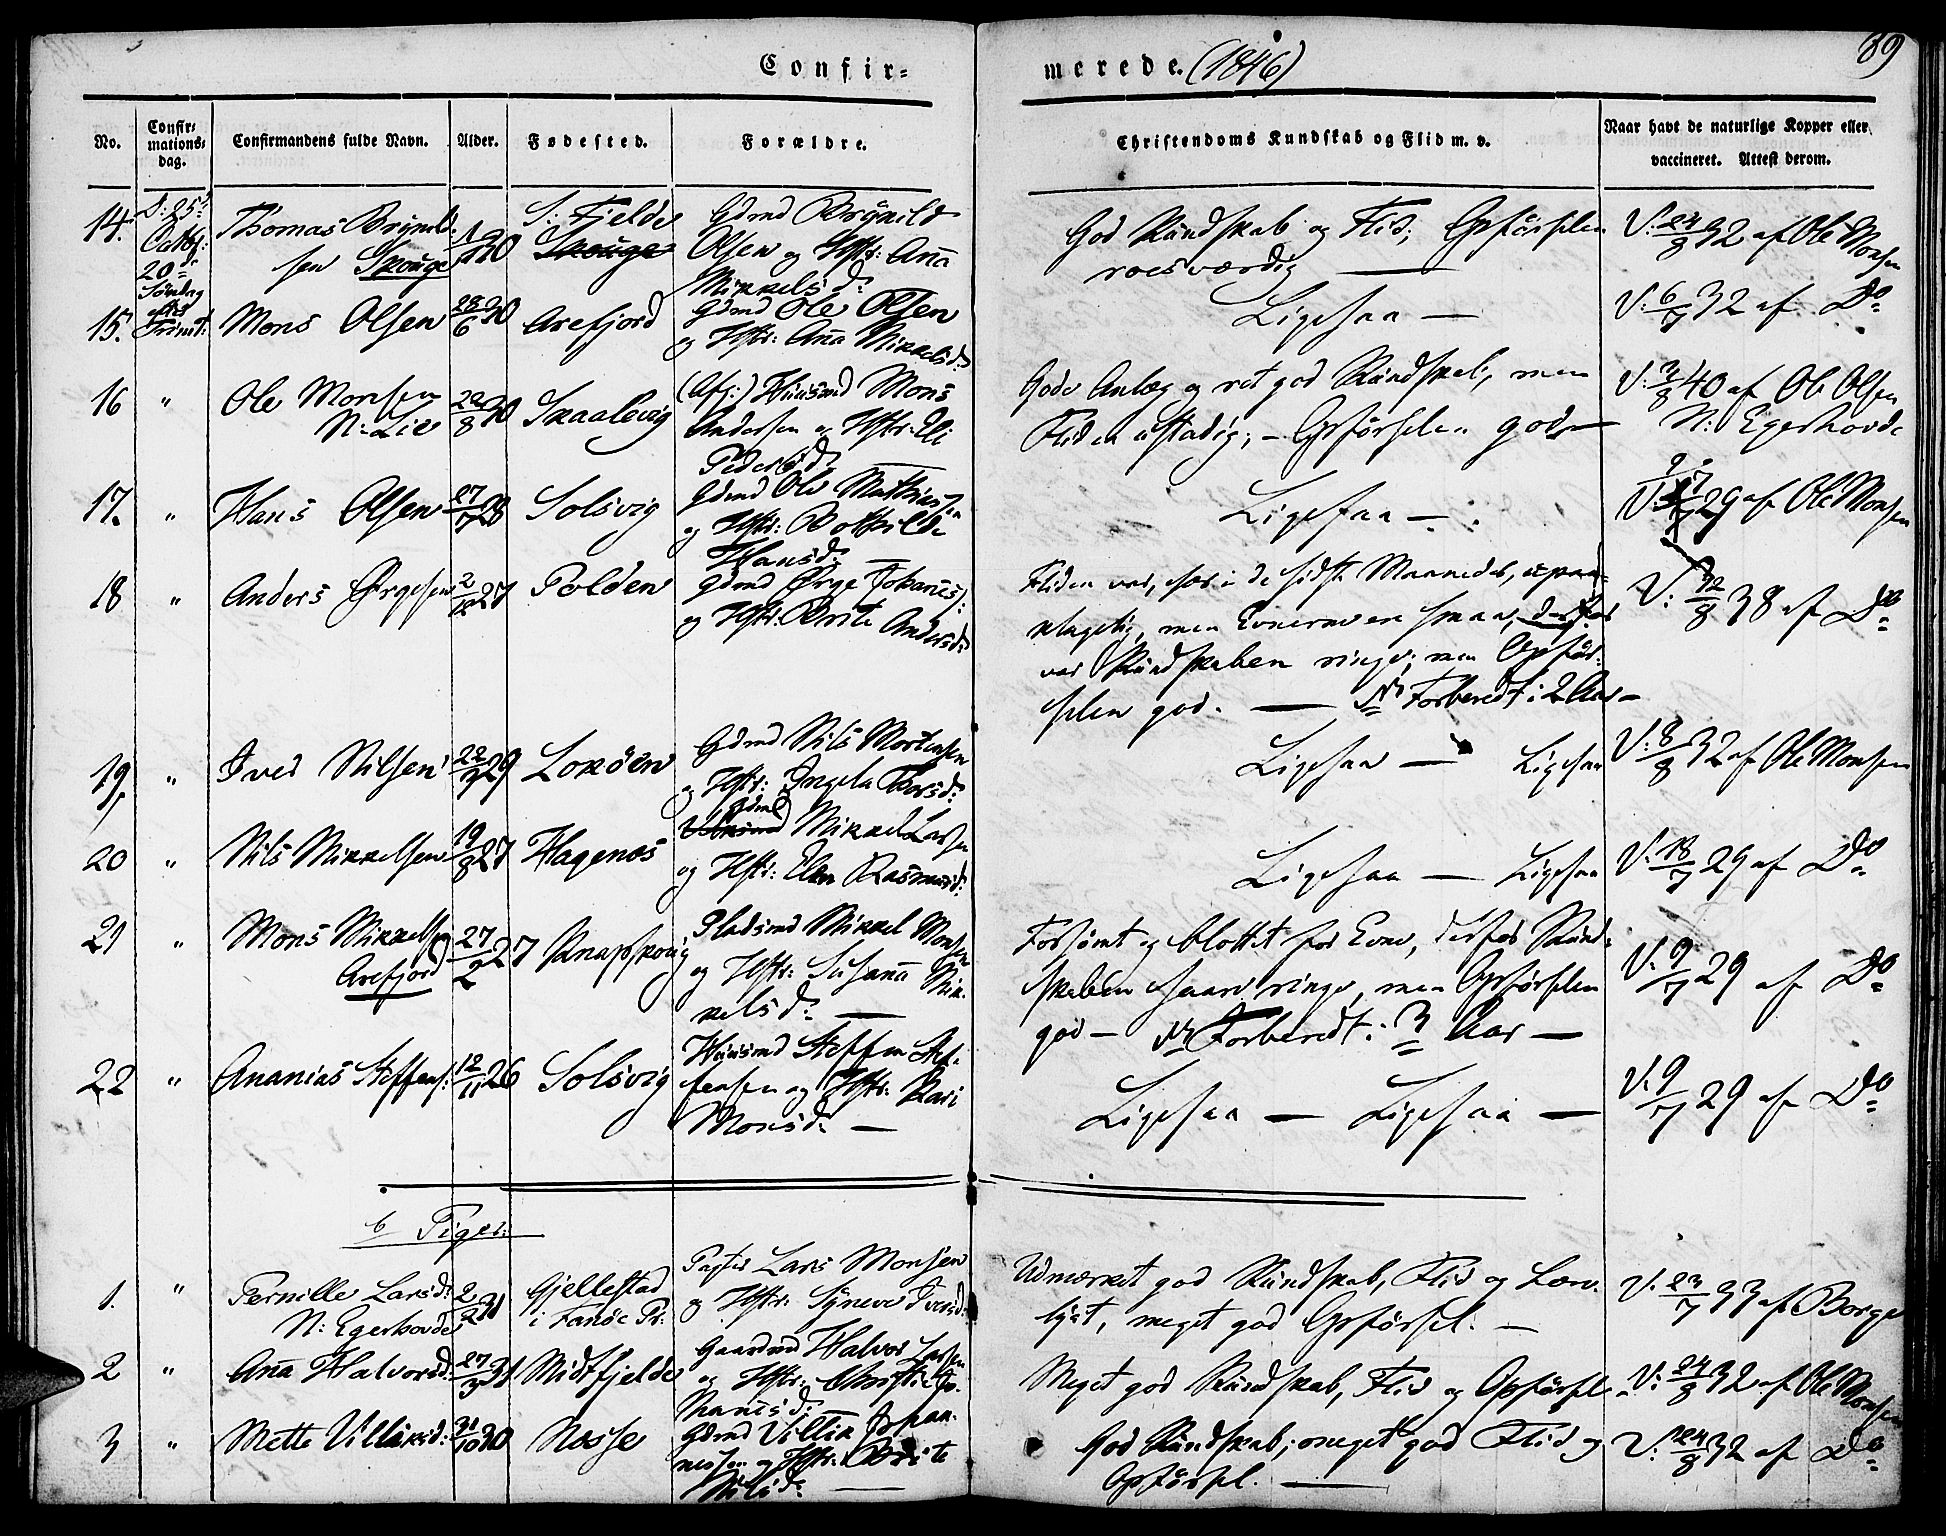 Confir-
merede. (1846)
89
No.
Confir-
mations-
dag.
Confirmandens fulde Navn.
Alder.
Fødested.
Forældre.
Christendoms Kundskab og Flid m. v.
Naar havt de naturlige Kopper eller
vaccineret. Attest derom.
14.
D: 25d
Octbr:
20de
Søndag
efter
Trinit:
Thomas Brynild-
sen Skouge
30
S: Fjelde
Skouge
Gdmd Brÿnild
Olsen og Hstr: Aña
Mikkelsd:
God Kundskab og Flid; Opførselen
roesværdig —
V: 24/8 32 af Ole Monsen
15.
Mons Olsen
28/6 30
Arefjord
Gdmd Ole Olsen
og Hstr: Aña Mikkelsd:
Ligesaa —
V: 6/7 32 af Do
16
"
Ole Monsen
N: Lie
22/8 30
Skaalevig
(Afg:) Huusmd Mons
Andersen og Hstr: Eli
Pedersd:
Gode Anlæg og ret god Kundskab, men
Fliden ustadig; – Opførselen god —
V: 3/8 40 af Ole Olsen
N: Egerhovde
17.
"
Hans Olsen
27/7 28
Solsvig
Gdmd Ole Mathiesen
og Hstr: Bothilde
Hansd: —
Ligesaa —
29 af Ole Monsen
18
"
Anders Ørgesen
2/12 27
Polden
Gdmd Ørge Johaness:
og Hstr: Brite Andersd:
Fliden var, især i de sidste Maaneder, upaa-
klagelig, men Evnerne vare smaa, derfor
var Kundskaben ringe; men Opfør-
selen god. — NB Forberedt i 2 Aar –
V: 38 af Do
19.
"
Iver Nilsen
22/9 29
Loköen
Gdmd Nils Mortensen
og Hstr: Ingela Thorsd:
Ligesaa — Ligesaa
V: 8/8 32 af Ole Monsen
20
"
Nils Mikkelsen
19/8 27
Hagenæs
Gdmd
Mikkel Larsen
og Hstr: Elen Rasmusd:
Ligesaa — Ligesaa
V: 18/7 29 af Do
21
"
Mons Mikkelsen
Arefjord
27/2 27
Knapskoug
Pladsmd Mikkel Monsen
og Hstr: Susaña Mik-
kelsd: —
Forsømt og blottet for Evne, derfor Kund-
skaben saare ringe, men Opførselen
god – NB Forberedt i 3 Aar —
V: 9/7 29 af Do
22
"
Ananias Steffens:
12/11 26
Solsvig
Huusmd Steffen Stef-
fensen og Hstr: Kari
Monsd: —
Ligesaa — Ligesaa —
V: 9/7 29 af Do
b Piger:
1.
"
Pernille Larsd:
N: Egerhovde
2/2 31
Gjellestad
i Fanöe Pr:
Pagter Lars Monsen
og Hstr: Sÿneve Iversd:
Udmærket god Kundskab, Flid og Lære-
lyst, meget god Opførsel. —
V: 23/7 33 af Borge
2
"
Aña Halvorsd:
27/3 31
Midtfjelde
Gaardmd Halvor Larsen
og Hstr: Christie Jo-
hanesd:
Meget god Kundskab, Flid og Opførsel.
V: 24/8 32 af Ole Monsen
3
"
Mette Villiksd:
31/10 30
Nesse
Gdmd Villik Johan-
nessen og Hstr: Brite
Nilsd: —
God Kundskab; meget god Flid og
Opførsel. —
V: 24/8 32 af Do